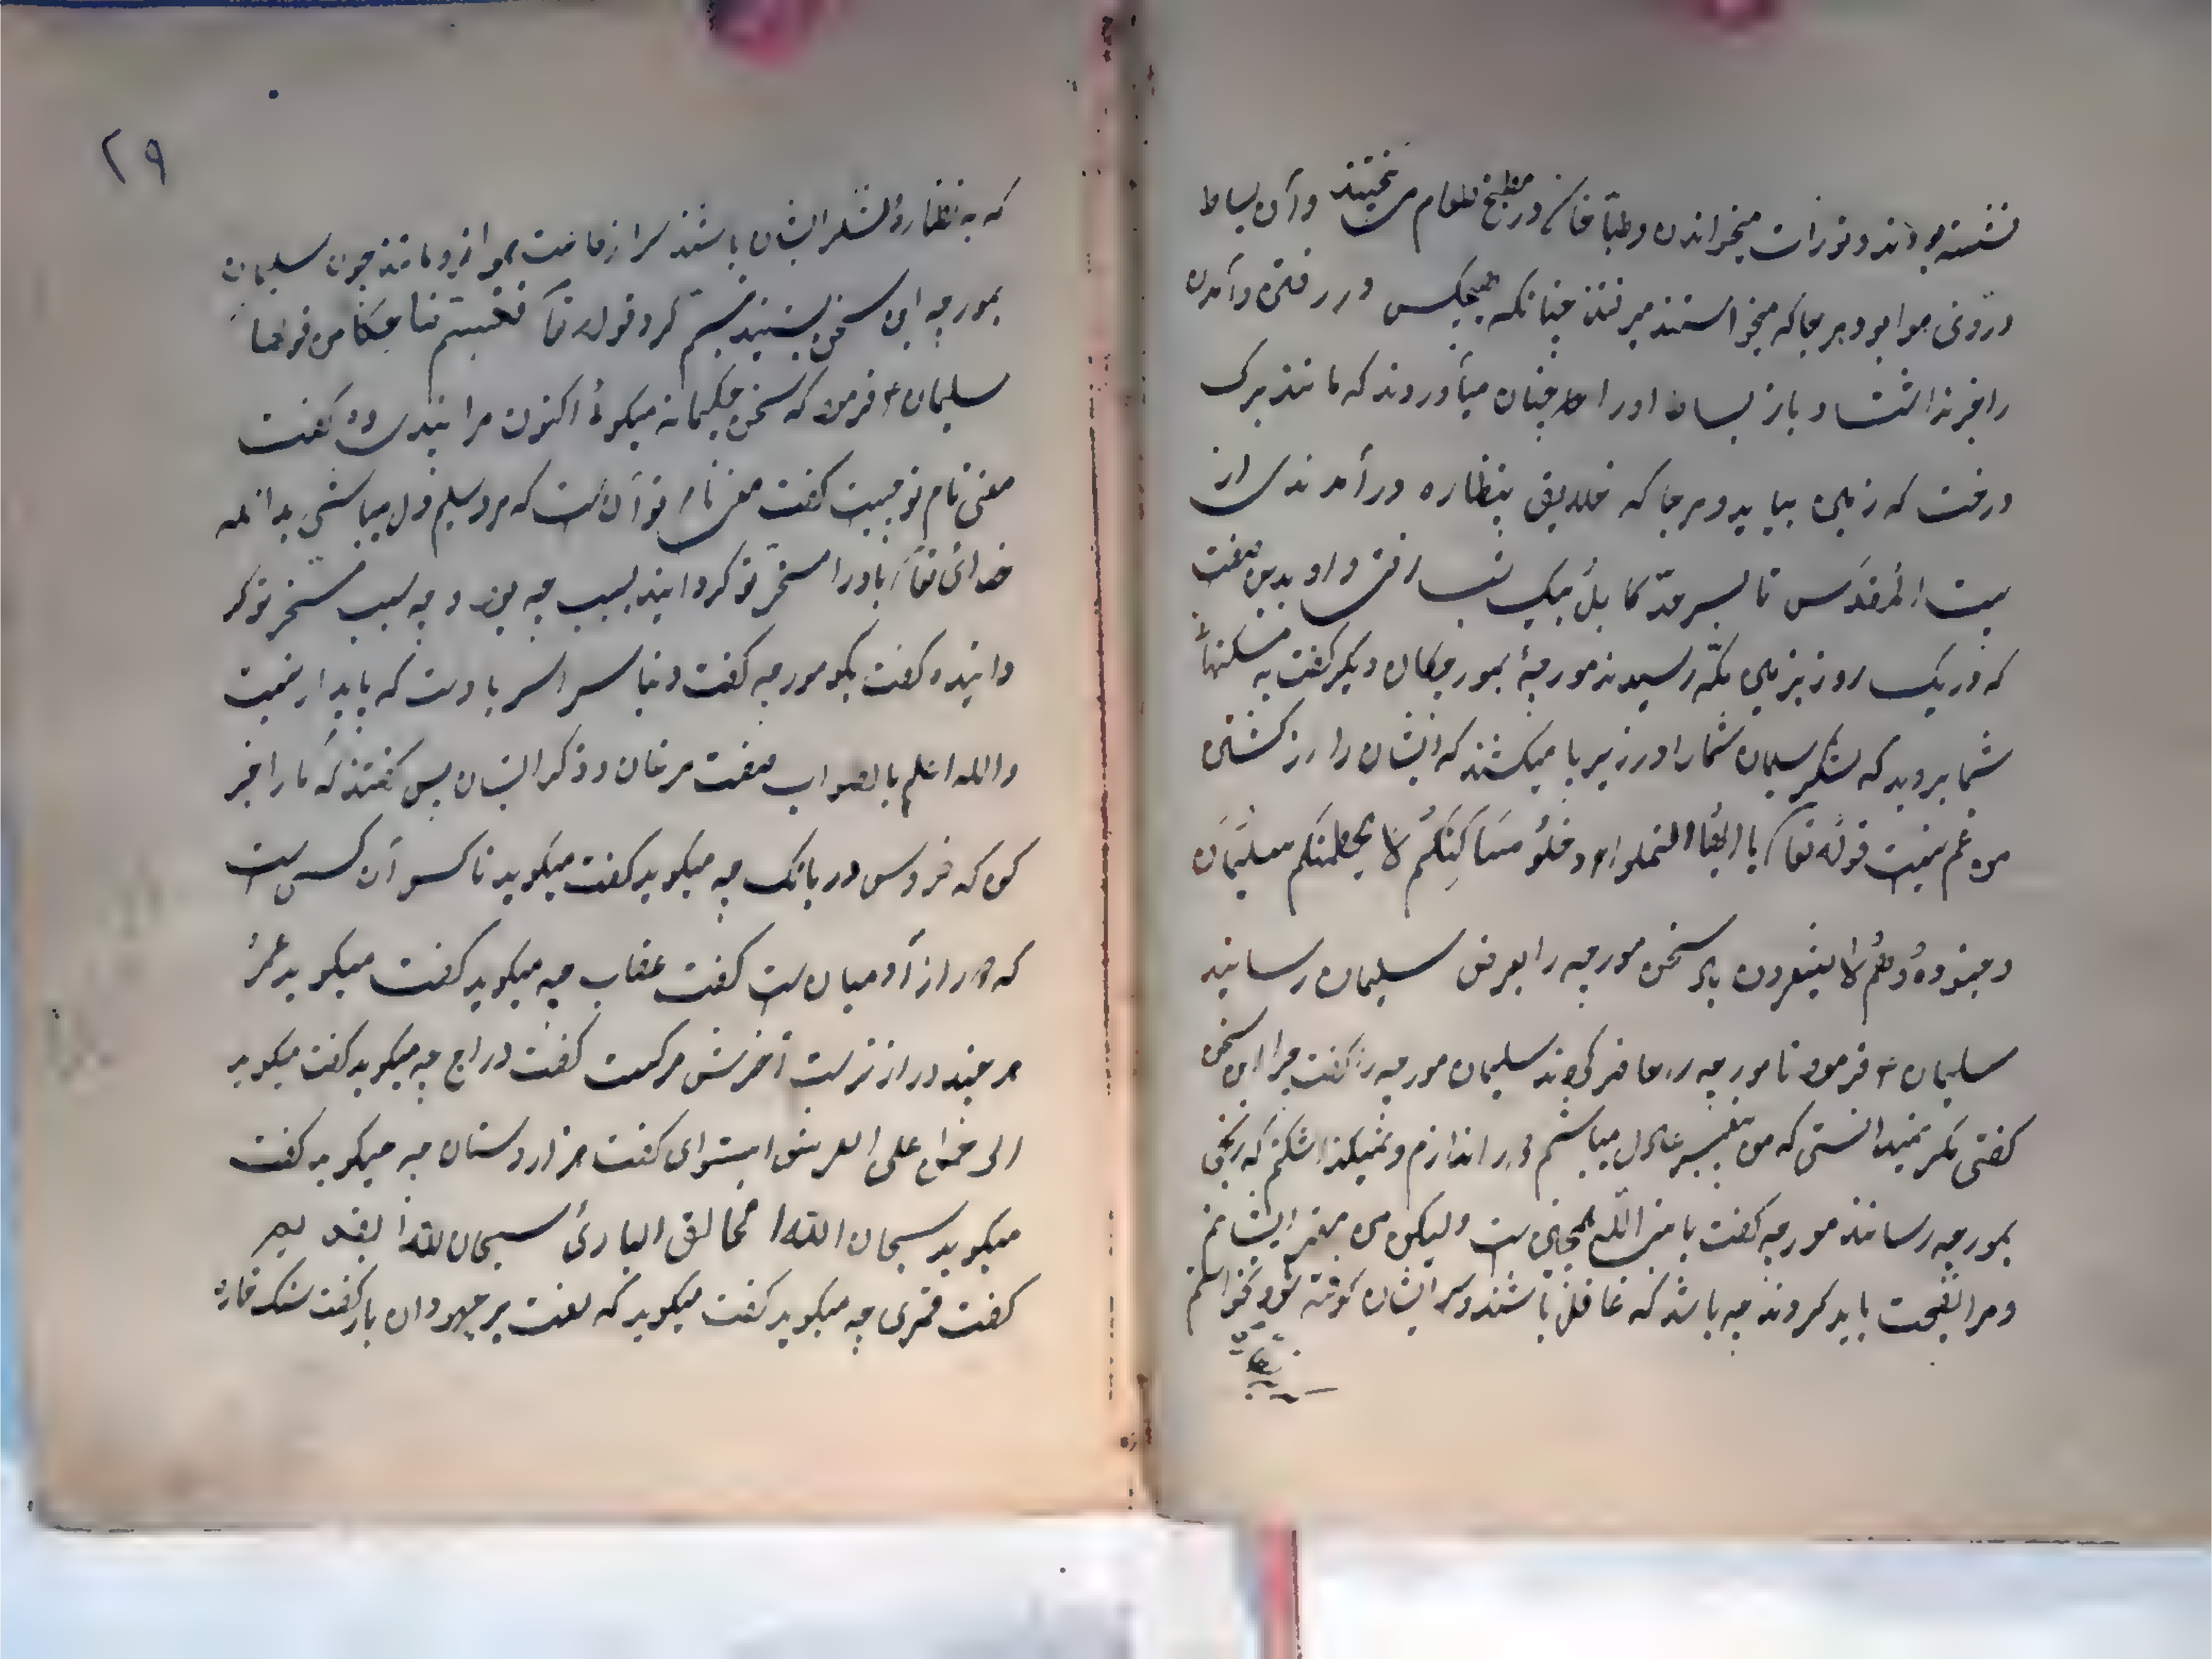 نشسته بودند و تورات میخواندن و طباخان در مطبخ طعام می پختند و آن بساط
در روی هوا بود هر جا که میخواستند میرفتند چنانکه هیچکس در رفتن و آمدن
را خبر نداشت و باز بسان او را چنان میآوردند که مانند برک
درخت که زمین بیاید و هر جا که خلایق بنظاره در آمدندی از
بیت المقدس تا بسر حد کابل بیک شب رفتی و او بدین صفت
که در یک روز بزمین مکه رسیدند مورچهٔ بمورچکان دیکر کفت به مسکنهاء
شما بروید که لشکر سلیمان شما را در زیر پا میکشند که ایشان را از کشتن
من غم نیست قوله تعا یا ایها النمل ادخلو مساکنکم لا یحطمنکم سلیمان
و جنوده و هم لا یشعرون باد سخن مورچه را بعرض سلیمان رسانید
سلیمان فرمود تا مورچه را حاضر کردند سلیمان مورچه را کفت چرا این سخن
کفتی مکر نمیدانستی که من پیغمبر عادل میباشم و نمیکذارم لشکرم که رنجی
بمورچه رسانند مورچه کفت یا نبی الله همچنین است ولیکن من مهتر ایشانم
و مرا نصیحت باید کرد نه چه باشد که غافل باشند و سر ایشان کوفته شود نخواستم
۲۹
که به نظارهٔ لشکر ایشان باشند از طاعت باز مانند چون سلیمان
بمورچه این سخن بشنید تبسم کرد قوله تعا فتبسم ضاحکا من قولها
سلیمان فرمود که سخن حکیمانه میکوئی اکنون مرا پندی ده کفت
معنی نام تو چیست کفت معنی نام تو آن است که مرد سلیم دل میباشی بدانکه
خدای تعا باد را مسخر تو کردانید بسبب چه بود و چه سبب مسخر تو کر
دانیده کفت بکو مورچه کفت دنیا سراسر باد است که پایدار نیست
والله اعلم بالصواب صفت مرغان و ذکر ایشان پس کفتند که ما را خبر
کوی که خروس در بانک چه میکوید کفت میکوید ناکس آن کس است
که دور از آدمیان است کفت عقاب چه میکوید کفت میکوید عمر
هر چند دراز تر است آخرش مرکست کفت دراج چه میکوید کفت میکوید
الرحمن علی العرش استوای کفت هزار دستان چه میکوید کفت
میکوید سبحان الله الخالق الباری سبحان الله
کفت قمری چه میکوید کفت میکوید که لعنت بر جهودان باد کفت سنک خاره